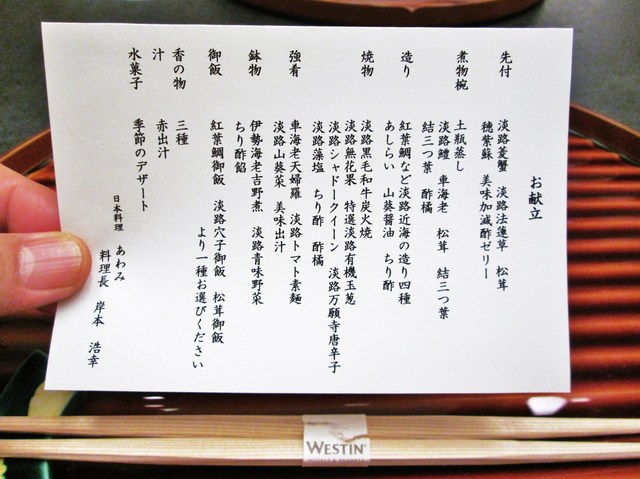 お献立
先付
淡路菱蟹　淡路法蓮草　松茸
穂紫蘇　美味加減酢ゼリー
煮物椀
土瓶蒸し
淡路鱧　車海老　松茸　結三つ葉
結三つ葉　酢橘
造り
紅葉鯛など淡路近海の造り四種
あしらい　山葵醤油　ちり酢
焼物
淡路黒毛和牛炭火焼
淡路無花果　特選淡路有機玉葱
淡路シャドークイーン　淡路万願寺唐辛子
淡路藻塩　ちり酢　酢橘
強肴
車海老天婦羅　淡路トマト素麺
淡路山葵菜　美味出汁
鉢物
伊勢海老吉野煮　淡路青味野菜
ちり酢餡
御飯
紅葉鯛御飯　淡路穴子御飯　松茸御飯
より一種お選びください
香の物
三種
汁
赤出汁
水菓子
季節のデザート
日本料理　あわみ
料理長　岸本　浩幸
WESTIN